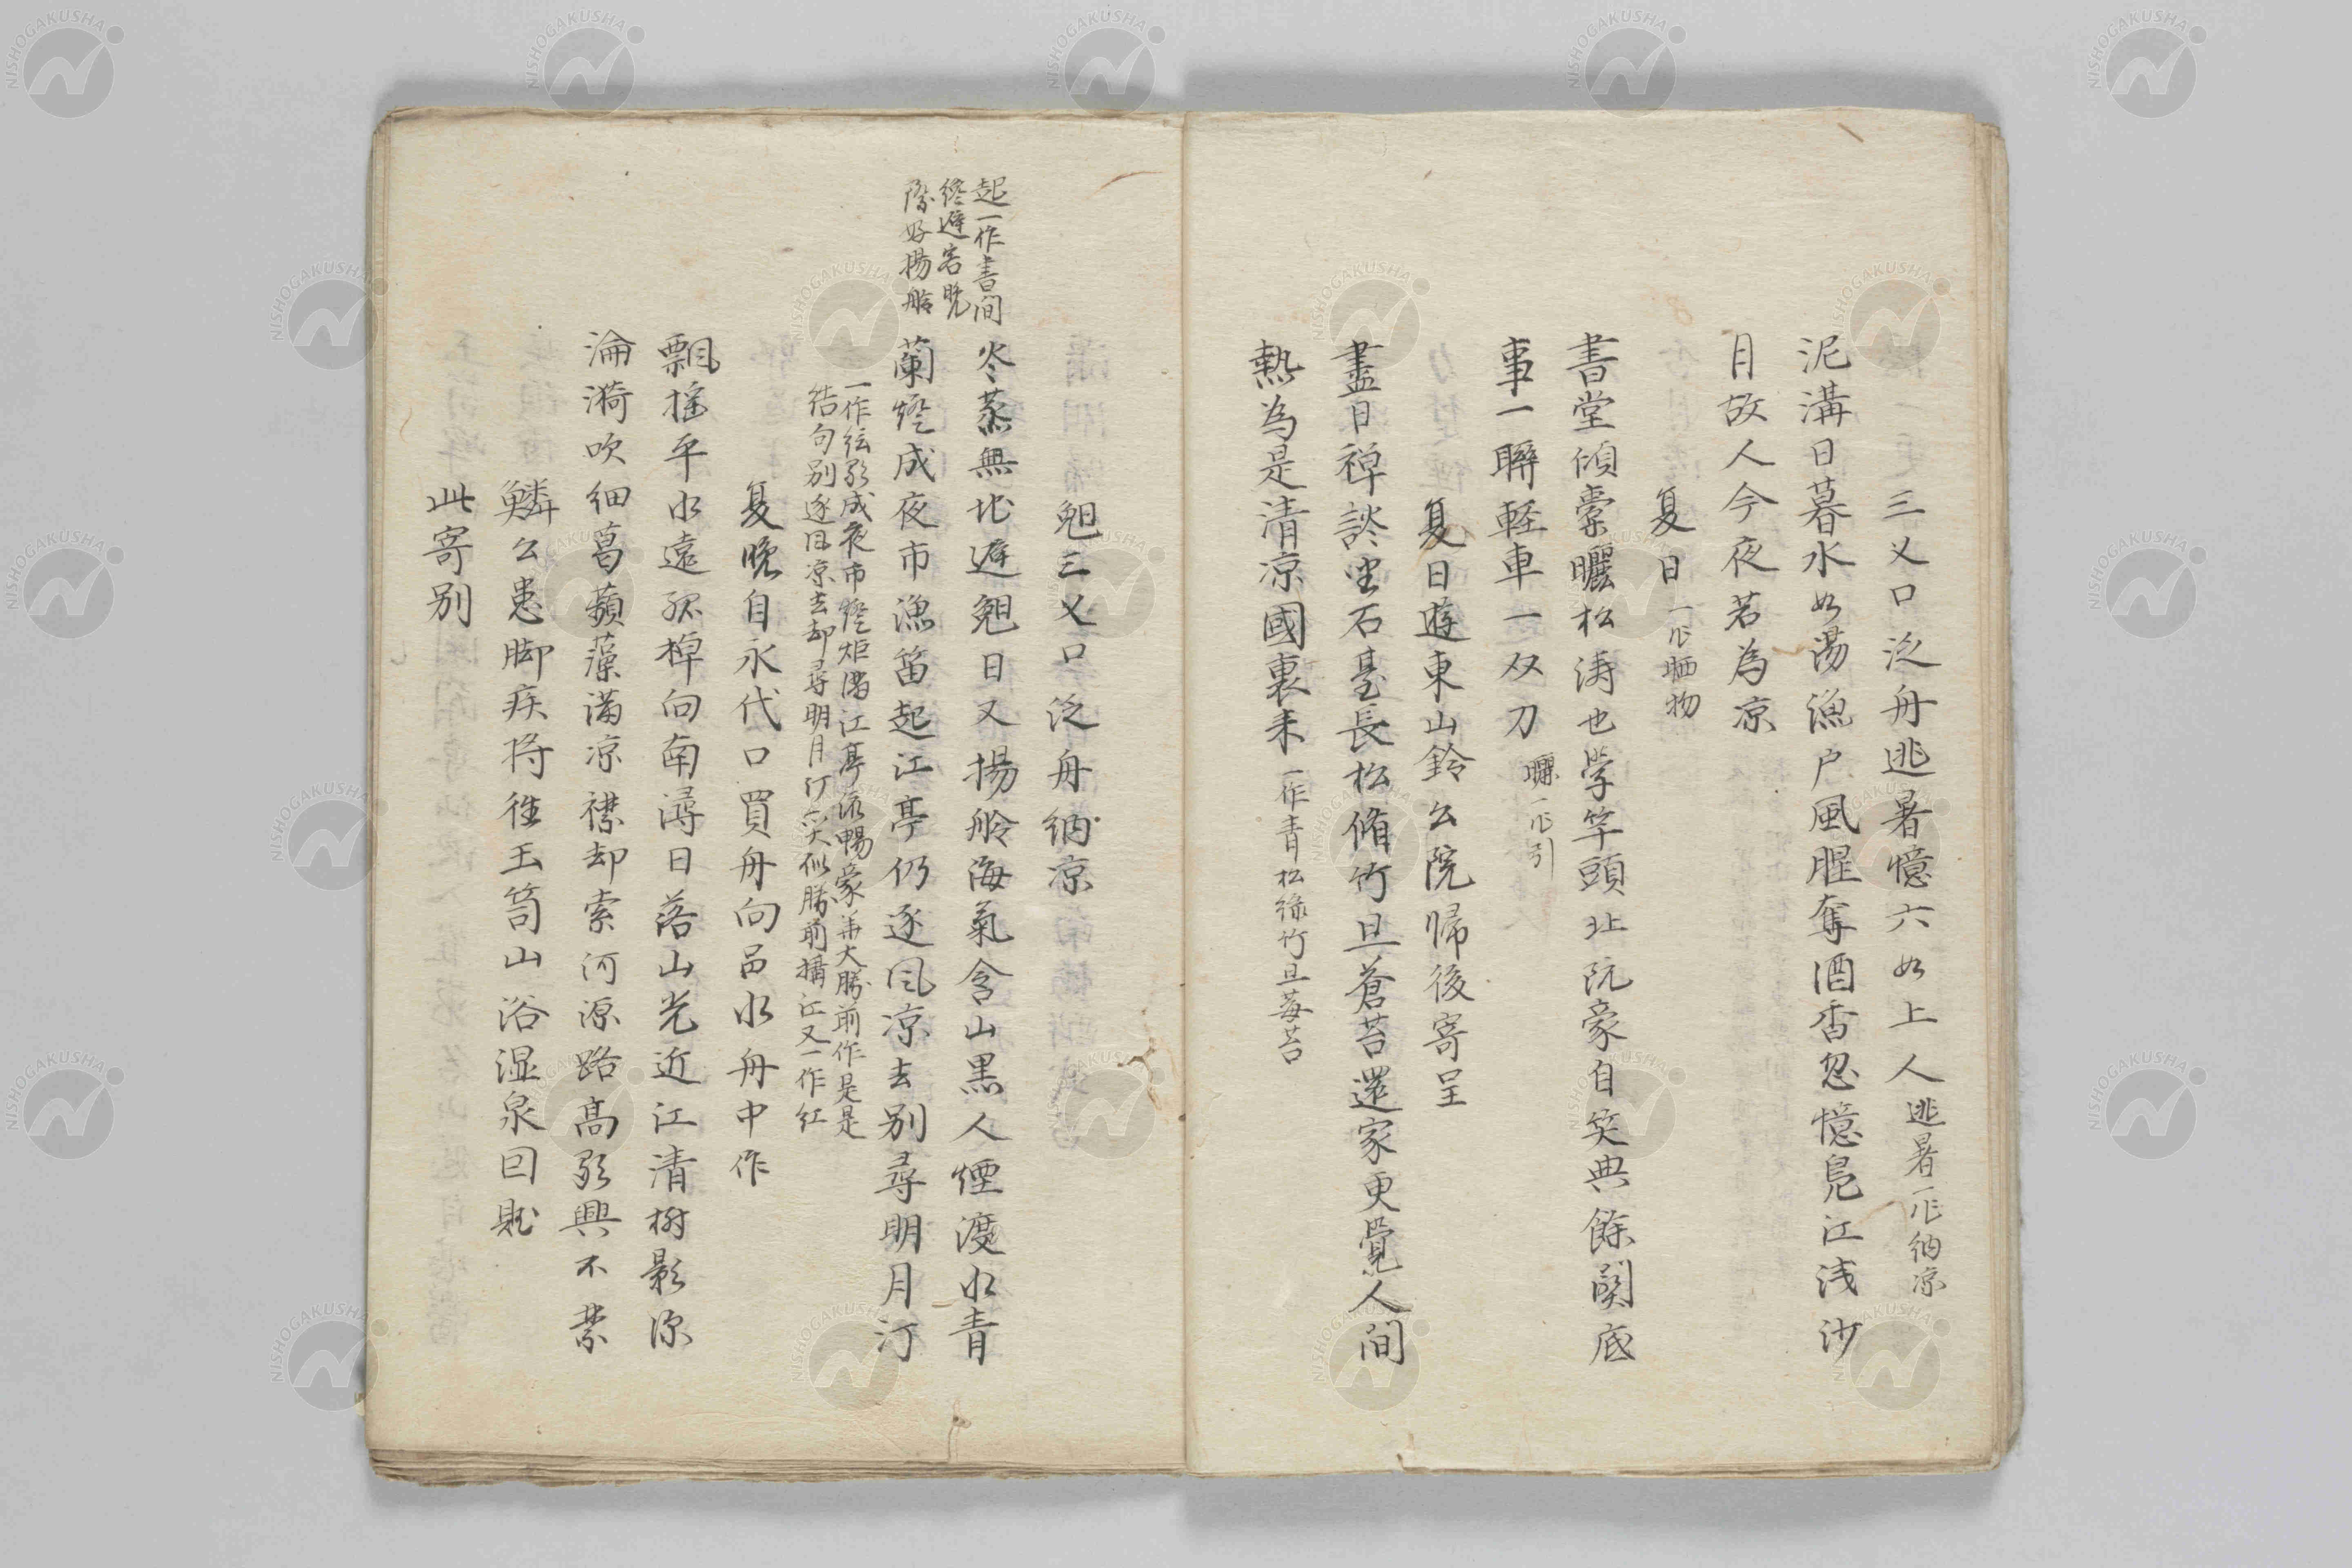 三叉口泛舟逃暑憶六如上人 逃暑一作納凉
泥溝日暮水如湯漁戶風腥奪酒香忽憶鳧江浅沙
月故人今夜若為凉
夏日 一作晒物
書堂傾橐曬松涛也学竿頭北阮豪自笑典餘関底
事一聯軽車一双刀 曬一作引
夏日遊東山鈴公院帰後寄呈
盡日禅談坐石基長松脩竹且蒼苔還家更覺人间
熱為是清凉國裏来 一作青松緑竹且莓苔
三叉口泛舟納凉
起一作書间
終避客晚
際好揚舲
炎蒸無地避 日又揚舲海氣含山黒人煙渡水青
蘭燈成夜市漁笛起江亭仍逐風凉去別尋明月汀
一作絃歌成夜市燈炬満江亭 暢豪華大勝前作是是
結句別逐風凉去却尋明月汀 似勝前搆江又一作紅
夏晚自永代口買舟向品水舟中作
飄揺平水遠孤棹向南潯日落山光近江清樹影深
淪漪吹细葛蘋藻満凉襟却索河源路髙歌興不禁
鱗公患脚疾将往玉笥山浴湿泉因賦
此寄別
NISHOGAKUSHA